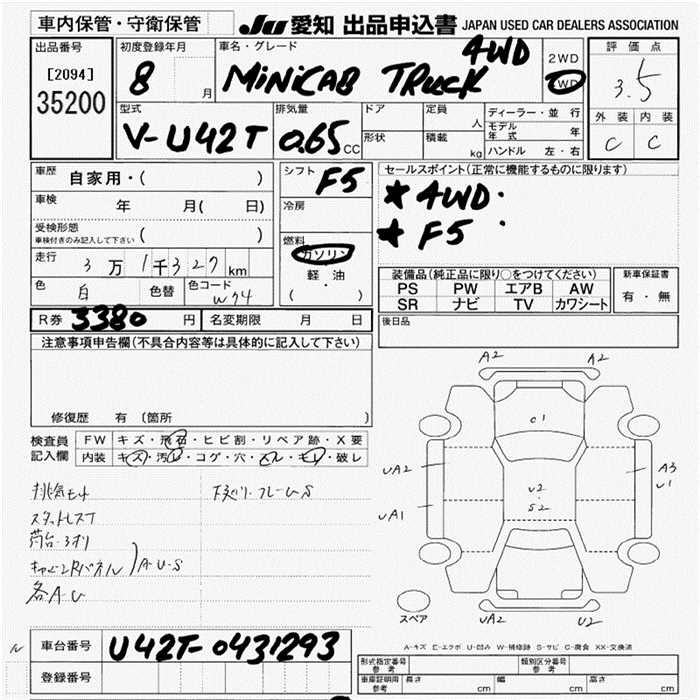 車内保管・守衛保管 JU 愛知 出品申込書 JAPAN USED CAR DEALERS ASSOCIATION
出品番号 初度登録年月 車名・グレード 4WD 2WD 4WD 評価点
[2094] 8 月 MiNiCAB TRUCK 3.5
35200
型式 排気量 ドア 定員 人 ディーラー・並行 外装 内装
V-U42T 0.65 CC 形状 積載 kg モデル年式 年 C C
ハンドル 左・右
車歴 自家用・( ) シフト F5 セールスポイント(正常に機能するものに限ります)
車検 年 月( 日) 冷房 ★4WD・
受検形態 ★F5・
車検付きのみ記入して下さい ( ) 燃料
走行 3万1千327km ガソリン
軽・油
( ・ )
装備品(純正品に限り○をつけてください) 新車保証書
色 白 色替 色コード W74 PS PW エアB AW 有・無
SR ナビ TV カワシート
R券 3380 円 名変期限 月 日 後日品
注意事項申告欄(不具合内容等は具体的に記入して下さい)
修復歴 有 〔箇所 〕
検査員 FW キズ・飛石・ヒビ割・リペア跡・X要
記入欄 内装 キズ・汚レ・コゲ・穴・スレ・キレ・破レ
排気モレ 下廻リ・フレームS
スタットレスT
荷台・ヨゴリ
キャビンRパネル)A・U・S
各AU
A2 A2
C1
UA2 A3
U1
U2
・
S2
UA1
スペア UA2 U2
A-キズ E-エクボ U-凹み W-補修跡 S-サビ C-腐食 XX-交換済
車台番号 U42T-0431293
登録番号
形式指定番号 参考 類別区分番号 参考
車庫証明用 参考 長さ cm 幅 cm 高さ cm